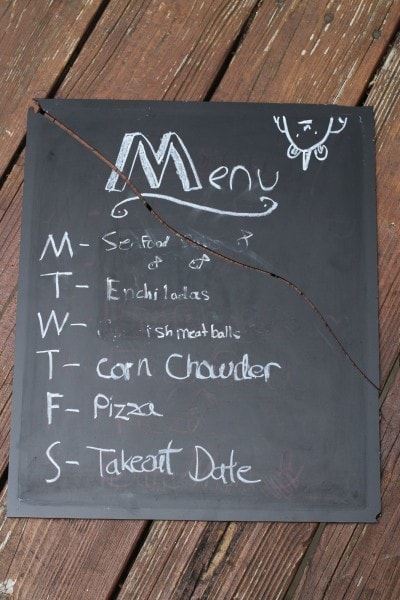 Menu
M- Seafood
T- Enchiladas
W- ish meatballs
T- Corn Chowder
F- Pizza
S- Takeout Date